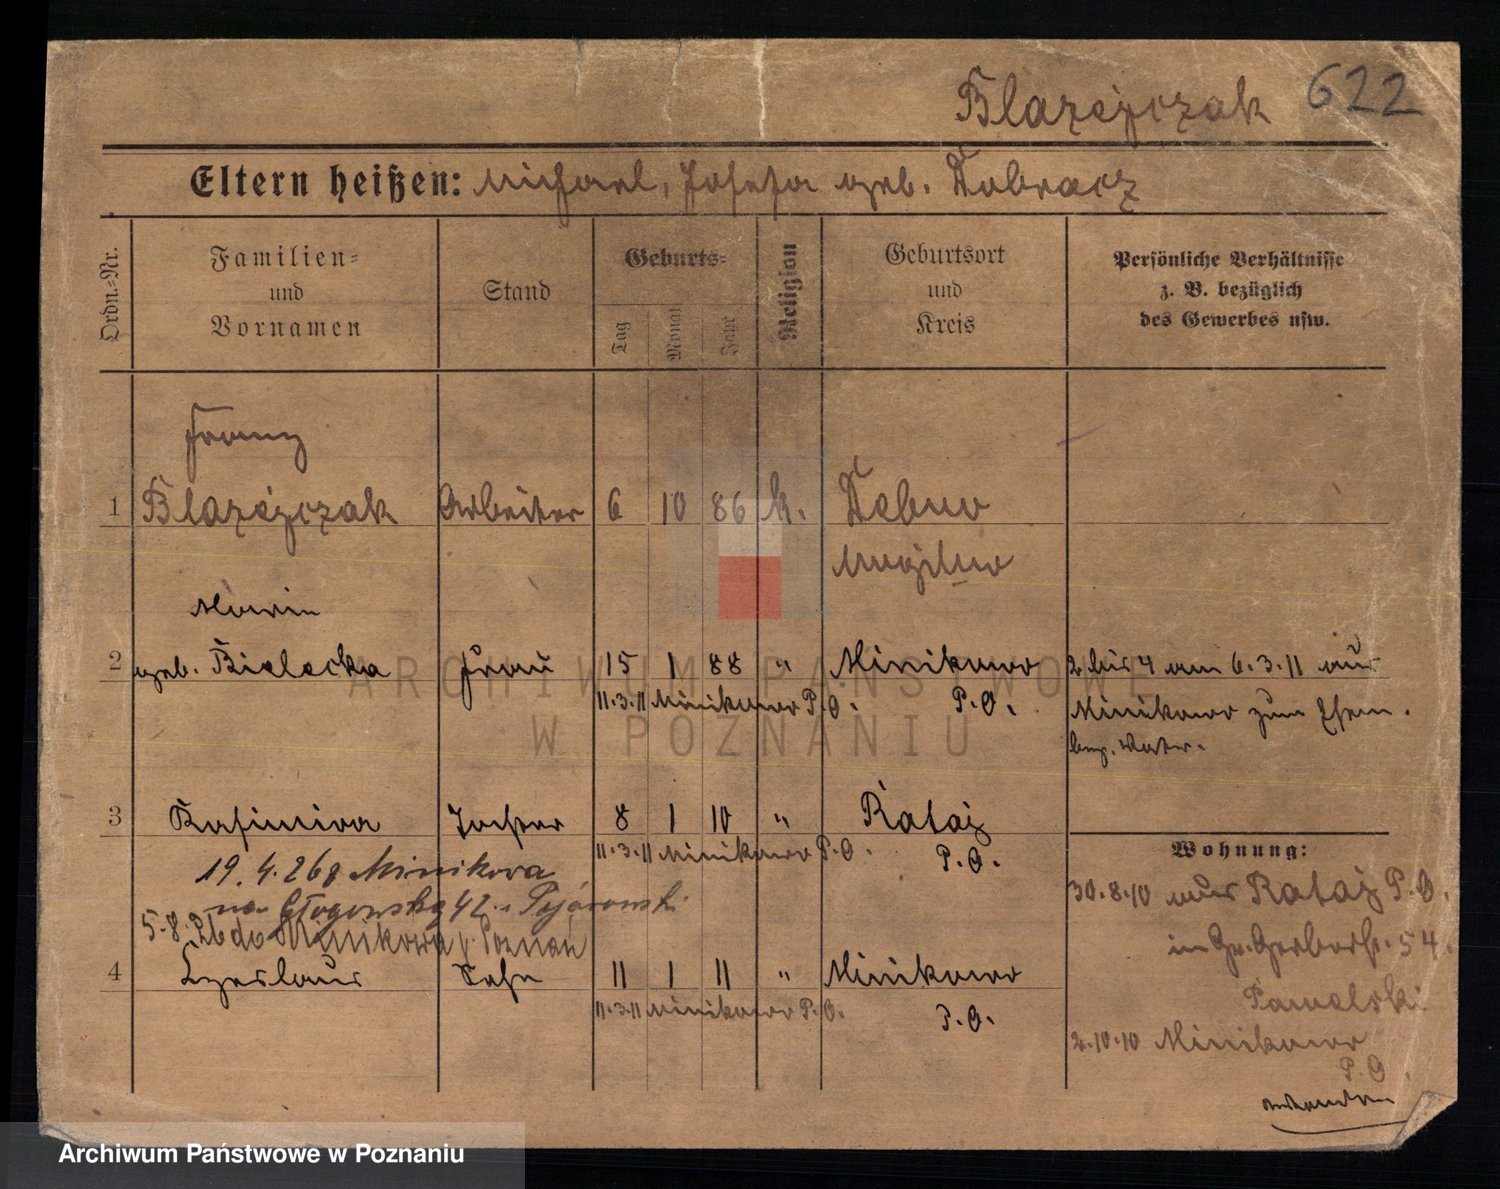 Blazejczak 622
Eltern heißen: Michael, Josefa geb. Dobracz
Ordn.-Nr.
Familien-
und
Vornamen
Stand
Geburts-
Tag
Monat
Jahr
Religion
Geburtsort
und
Kreis
Persönliche Verhältnisse
z. B. bezüglich
des Gewerbes usw.
Franz
1 Blazejczak Arbeiter 6 10 86 k. Debno
Mogilno
Maria
2 geb. Bielecka Frau 15 1 88 " Minikowo
P.O.
11.3.11 Minikowo P.O.
2 bis 4 am 6.3.11 aus
Minikowo zum Ehem.
bez. Vater.
3 Kasimira Tochter 8 1 10 " Rataj
P.O.
11.3.11 Minikowo P.O.
19.4.26 Minikowa
na Głogowską 42
5.8.26 do Minikowa p. Poznań
4 Czeslaus Sohn 11 1 11 " Minikowo
P.O.
11.3.11 Minikowo P.O.
Wohnung:
30.8.10 aus Rataj P.O.
in Gr. Gerberstr. 54.
Pawelski
2.10.10 Minikowo
P.O.
ARCHIWUM PAŃSTWOWE
W POZNANIU
Archiwum Państwowe w Poznaniu